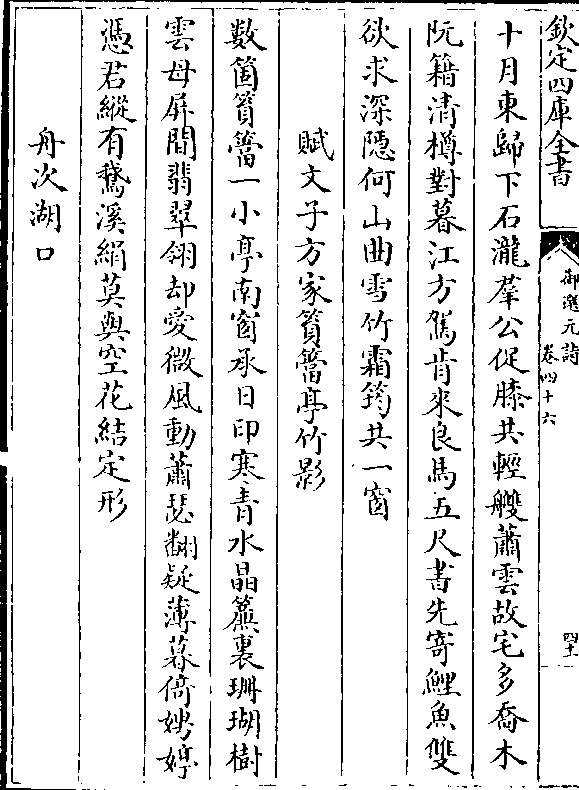 欽定四庫全書
御選元詩
卷四十六
四十
十月東歸下石瀧羣公促膝共輕艭蕭雲故宅多喬木
阮籍清樽對暮江方駕肯來良馬五尺書先寄鯉魚雙
欲求深隱何山曲雪竹霜筠共一窗
賦文子方家篔簹亭竹影
數箇篔簹一小亭南窗承日印寒青水晶簾裏珊瑚樹
雲母屏間翡翠翎却愛微風動蕭瑟翻疑薄暮倚娉婷
憑君縱有鵞溪絹莫與空花結定形
舟次湖口